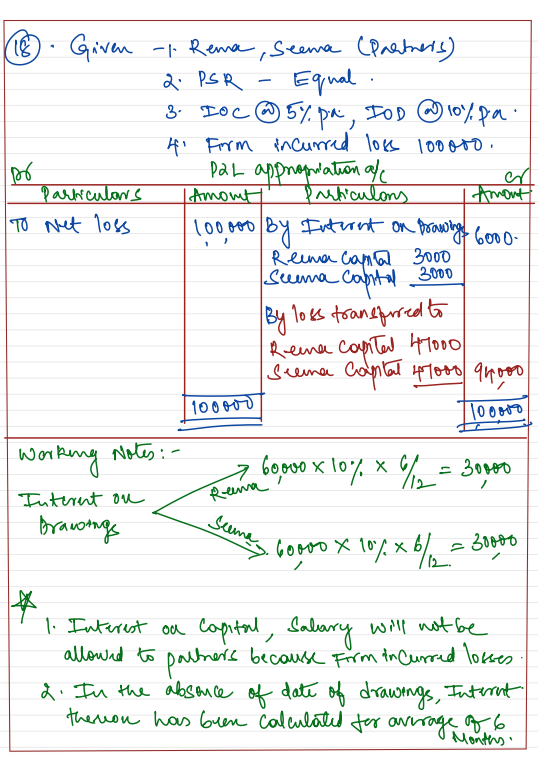 18. Given - 1. Rema, Seema (Partners)
2. PSR - Equal.
3. IOC @ 5% pa, IOD @ 10% pa.
4. Firm incurred loss 100000.
Dr P2L appropriation a/c Cr
Particulars Amount Particulars Amount
To Net loss 100,000 By Interest on Drawings 6000.
Reema Capital 3000
Seema Capital 3000
By loss transferred to
Reema Capital 47000
Seema Capital 47000 94,000
100000 100,000
Working Notes:-
Interest on Drawings
Reema 60,000 X 10% X 6/12 = 30,000
Seema 60,000 X 10% X 6/12 = 30,000
1. Interest on Capital, Salary will not be
allowed to partners because Firm incurred losses.
2. In the absence of date of drawings, Interest
thereon has been calculated for average of 6
Months.